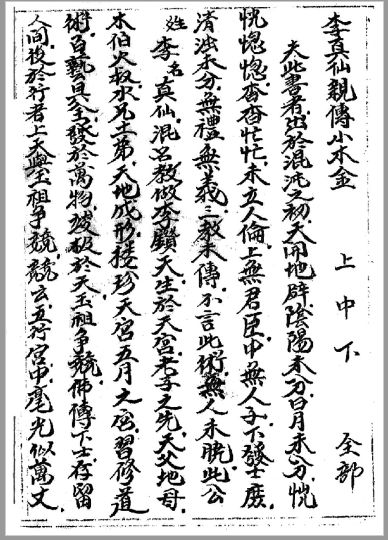 李真仙親傳小木金 上中下 全部
夫此書者出於混沌之初天開地辟陰陽未分日月未分恍
恍惚惚杳杳忙忙未立人倫上無君臣中無人子下發士庶
清濁未分無禮無義三教未傳不言此術無人未脫此公
姓李名真仙混名教做李鑽天生於天宮老子之先天父地母
木伯火叔水兄土弟天地成形接珍天宮五月之宮習修道
術百藝具全發於萬物於天玉祖爭競佛傳下士存留
人間後於行者上天與玉祖爭競競去五行宮中毫光似萬丈